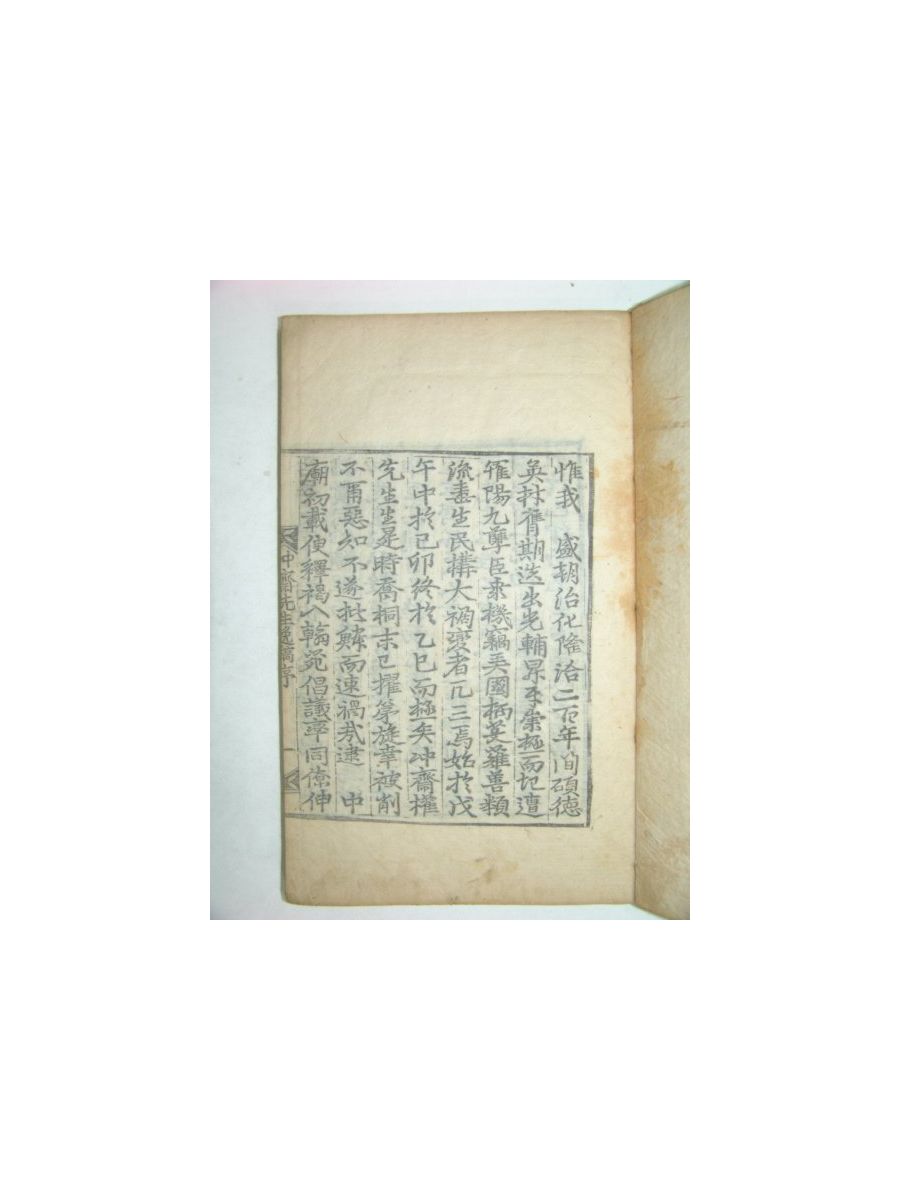 惟我　盛朝治化隆洽二百年間碩德
英材膺期迭出光輔昇平崇極而圮遭
罹陽九孽臣乘機竊弄國柄芟薙善類
流毒生民構大禍變者凡三焉始於戊
午中於己卯終於乙巳而極矣冲齋權
先生生是時喬桐末已擢第旋幸被削
不爾惡知不遂批鱗而速禍哉逮　中
廟初載使釋褐入翰苑倡議率同僚伸
冲齋先生逸稿序　一